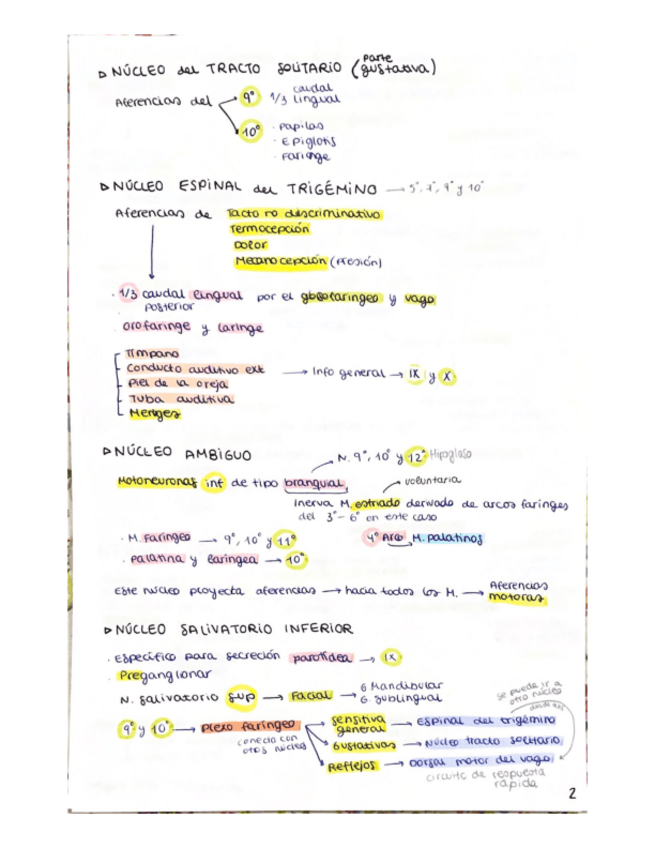 ▷ NÚCLEO del TRACTO SOLITARIO (parte gustativa)
Aferencias del 9º 1/3 caudal lingual
10º · Papilas
· Epiglotis
· Faringe
▷ NÚCLEO ESPINAL del TRIGÉMINO → 5º, 7º, 9º y 10º
Aferencias de Tacto no discriminativo
Termocepción
Dolor
Mecanocepción (Presión)
· 1/3 caudal lingual por el glosofaringeo y vago
posterior
· orofaringe y laringe
Tímpano
Conducto auditivo ext → Info general → IX y X
Piel de la oreja
Tuba auditiva
Meninges
▷ NÚCLEO AMBIGUO → N. 9º, 10º y 12º Hipogloso
Motoneuronas inf de tipo branquial → voluntaria
Inerva M. estriado derivado de arcos faringes
del 3º - 6º en este caso
· M. Faringeo → 9º, 10º y 11º 4º Arco → M. palatinos
· Palatina y laringea → 10º
Este núcleo proyecta aferencias → hacia todos los M. → Aferencias motoras
▷ NÚCLEO SALIVATORIO INFERIOR
· Específico para secreción parotídea → IX
· Preganglionar
N. Salivatorio sup → Facial → G Mandibular
→ G. sublingual
se puede ir a otro núcleo
9º y 10º → Plexo faringeo → sensitiva general → Espinal del trigémino
conecta con otros núcleos → Gustativas → Núcleo tracto solitario
→ Reflejos → Dorsal motor del vago
circuito de respuesta rápida
2